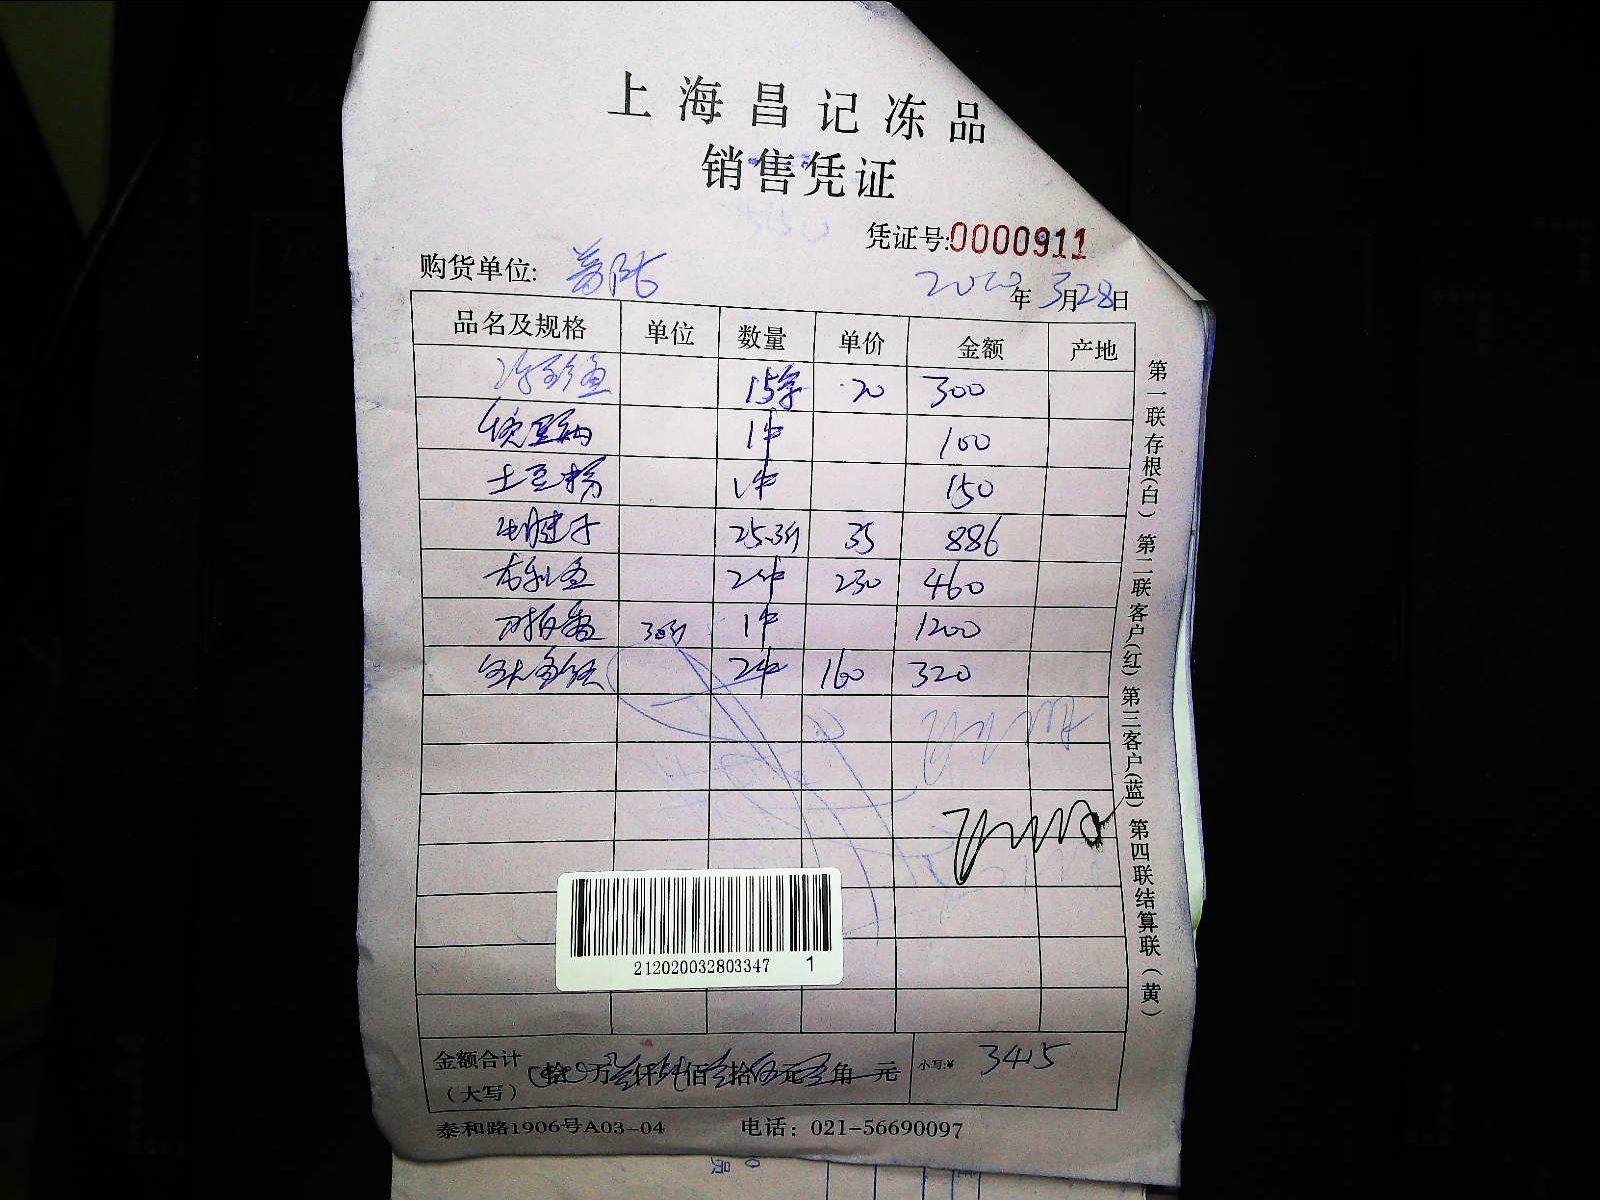 上海昌记冻品
销售凭证
凭证号:0000911
购货单位:
2020年3月28日
品名及规格 单位 数量 单价 金额 产地
15条 20 300
1件 100
土豆粉 1件 150
牛腱子 25.3斤 35 886
多利鱼 2件 230 460
30斤 1件 1200
2件 160 320
第一联存根(白) 第二联客户(红) 第三客户(蓝) 第四联结算联(黄)
212020032803347 1
金额合计(大写) 拾 万 仟 佰 拾 元 角 元 小写:¥ 3415
泰和路1906号A03-04 电话: 021-56690097